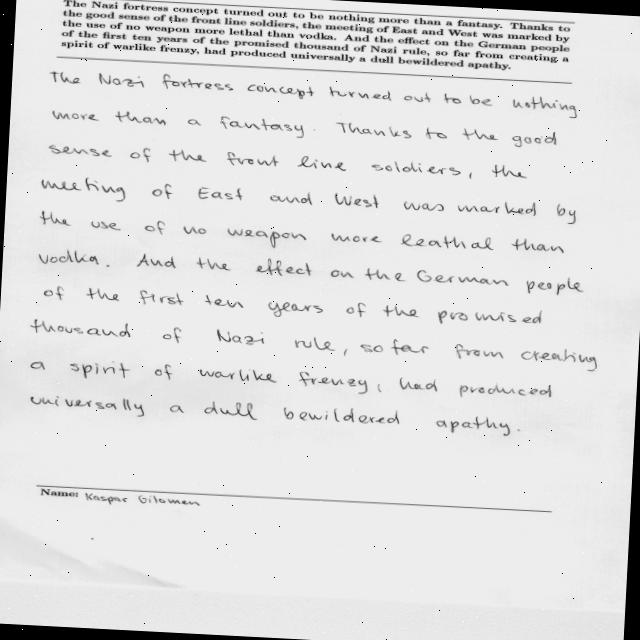 The Nazi fortress concept turned out to be nothing more than a fantasy. Thanks to
the good sense of the front line soldiers, the meeting of East and West was marked by
the use of no weapon more lethal than vodka. And the effect on the German people
of the first ten years of the promised thousand of Nazi rule, so far from creating a
spirit of warlike frenzy, had produced universally a dull bewildered apathy.
The Nazi fortress concept turned out to be nothing
more than a fantasy. Thanks to the good
sense of the front line soldiers, the
meeting of East and West was marked by
the use of no weapon more leathal than
vodka. And the effect on the German people
of the first ten years of the promised
thousand of Nazi rule, so far from creating
a spirit of warlike frenzy, had produced
universally a dull bewildered apathy.
Name: Kaspar Gilomen